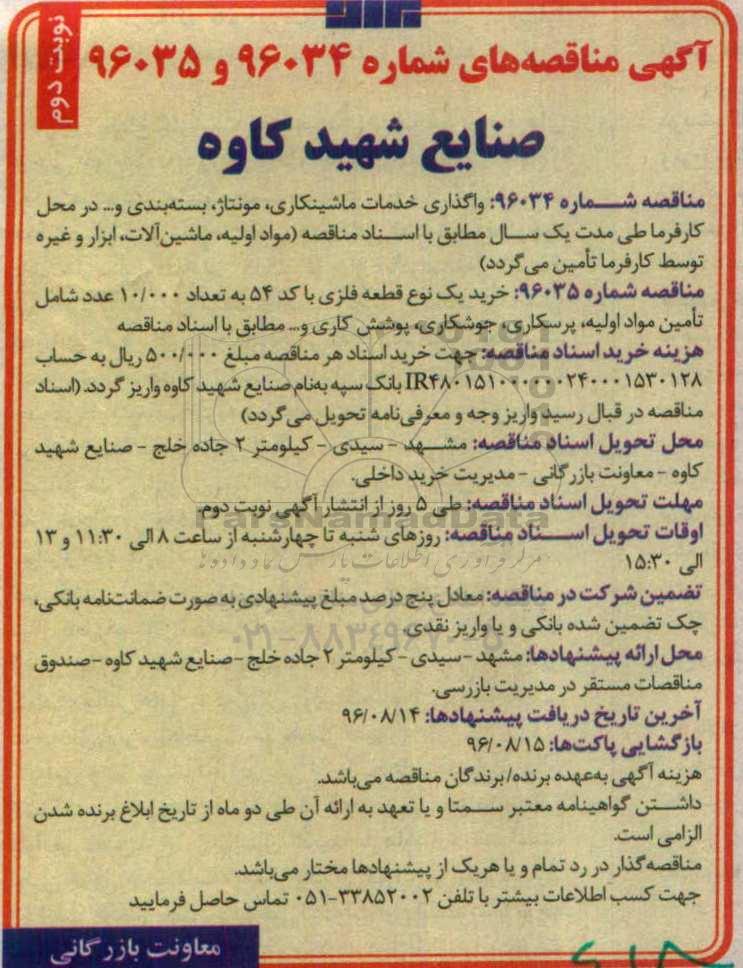 نوبت دوم
آگهی مناقصه‌های شماره ۹۶۰۳۴ و ۹۶۰۳۵
صنایع شهید کاوه
مناقصه شماره ۹۶۰۳۴: واگذاری خدمات ماشینکاری، مونتاژ، بسته‌بندی و... در محل
کارفرما طی مدت یک سال مطابق با اسناد مناقصه (مواد اولیه، ماشین‌آلات، ابزار و غیره
توسط کارفرما تأمین می‌گردد)
مناقصه شماره ۹۶۰۳۵: خرید یک نوع قطعه فلزی با کد ۵۴ به تعداد ۱۰/۰۰۰ عدد شامل
تأمین مواد اولیه، پرسکاری، جوشکاری، پوشش کاری و... مطابق با اسناد مناقصه
هزینه خرید اسناد مناقصه: جهت خرید اسناد هر مناقصه مبلغ ۵۰۰/۰۰۰ ریال به حساب
IR۴۸۰۱۵۱۰۰۰۰۰۰۲۴۰۰۰۱۵۳۰۱۲۸ بانک سپه به‌نام صنایع شهید کاوه واریز گردد. (اسناد
مناقصه در قبال رسید واریز وجه و معرفی‌نامه تحویل می‌گردد)
محل تحویل اسناد مناقصه: مشهد - سیدی - کیلومتر ۲ جاده خلج - صنایع شهید
کاوه - معاونت بازرگانی - مدیریت خرید داخلی.
مهلت تحویل اسناد مناقصه: طی ۵ روز از انتشار آگهی نوبت دوم.
ParsNamadData
اوقات تحویل اسناد مناقصه: روزهای شنبه تا چهارشنبه از ساعت ۸ الی ۱۱:۳۰ و ۱۳
الی ۱۵:۳۰
مرکز فرآوری اطلاعات پارس نماد داده‌ها
تضمین شرکت در مناقصه: معادل پنج درصد مبلغ پیشنهادی به صورت ضمانت‌نامه بانکی،
چک تضمین شده بانکی و یا واریز نقدی
محل ارائه پیشنهادها: مشهد - سیدی - کیلومتر ۲ جاده خلج - صنایع شهید کاوه - صندوق
مناقصات مستقر در مدیریت بازرسی.
آخرین تاریخ دریافت پیشنهادها: ۹۶/۰۸/۱۴
بازگشایی پاکت‌ها: ۹۶/۰۸/۱۵
هزینه آگهی به‌عهده برنده/برندگان مناقصه می‌باشد.
داشتن گواهینامه معتبر سمتا و یا تعهد به ارائه آن طی دو ماه از تاریخ ابلاغ برنده شدن
الزامی است.
مناقصه‌گذار در رد تمام و یا هریک از پیشنهادها مختار می‌باشد.
جهت کسب اطلاعات بیشتر با تلفن ۳۳۸۵۲۰۰۲-۰۵۱ تماس حاصل فرمایید
معاونت بازرگانی